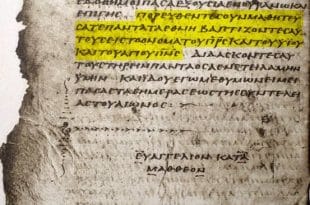 ΕΔΟΘΗΜΟΙΠΑϹΑΕΞΟΥϹΙΑΕΝΟΥΝΩΚΑΙ
ΕΠΙΓΗϹ ΠΟΡΕΥΘΕΝΤΕϹΟΥΝΜΑΘΗΤΕΥ
ϹΑΤΕΠΑΝΤΑΤΑΕΘΝΗ ΒΑΠΤΙΖΟΝΤΕϹΑΥ
ΤΟΥϹΕΙϹΤΟΟΝΟΜΑΤΟΥΠΡϹΚΑΙΤΟΥΥΙΟΥ
ΚΑΙΤΟΥΑΓΙΟΥΠΝϹ ΔΙΔΑϹΚΟΝΤΕϹΑΥ
ΤΟΥϹΤΗΡΕΙΝΠΑΝΤΑΟϹΑΕΝΕΤΕΙΛΑΜΗΝ
ΥΜΙΝ ΚΑΙΙΔΟΥΕΓΩΜΕΘΥΜΩΝΕΙΜΕΙ
ΠΑϹΑϹΤΑϹΗΜΕΡΑϹΕΩϹΤΗϹϹΥΝΤΕΛΕΙ
ΑϹΤΟΥΑΙΩΝΟϹ
ΕΥΑΓΓΕΛΙΟΝΚΑΤΑ
ΜΑΘΘΕΟΝ